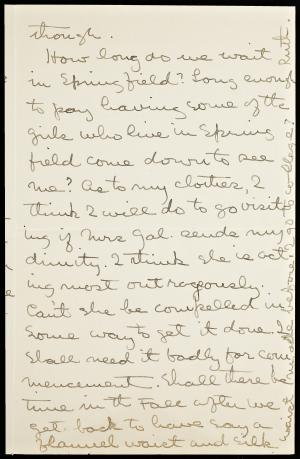 though.
How long do we wait
in Springfield? Long enough
to pay having some of the
girls who live in Spring
field come down to see
me? As to my clothes, I
think I will do to go visit-
ing if Mrs Gal. sends my
dimity. I think she is act
ing most outrageously.
Can't she be compelled in
some way to get it done. I
shall need it badly for com
mencement. Shall there be
time in the Fall after we
get back to have say a
flannel waist and silk
waist made before I go to college? Ruth.